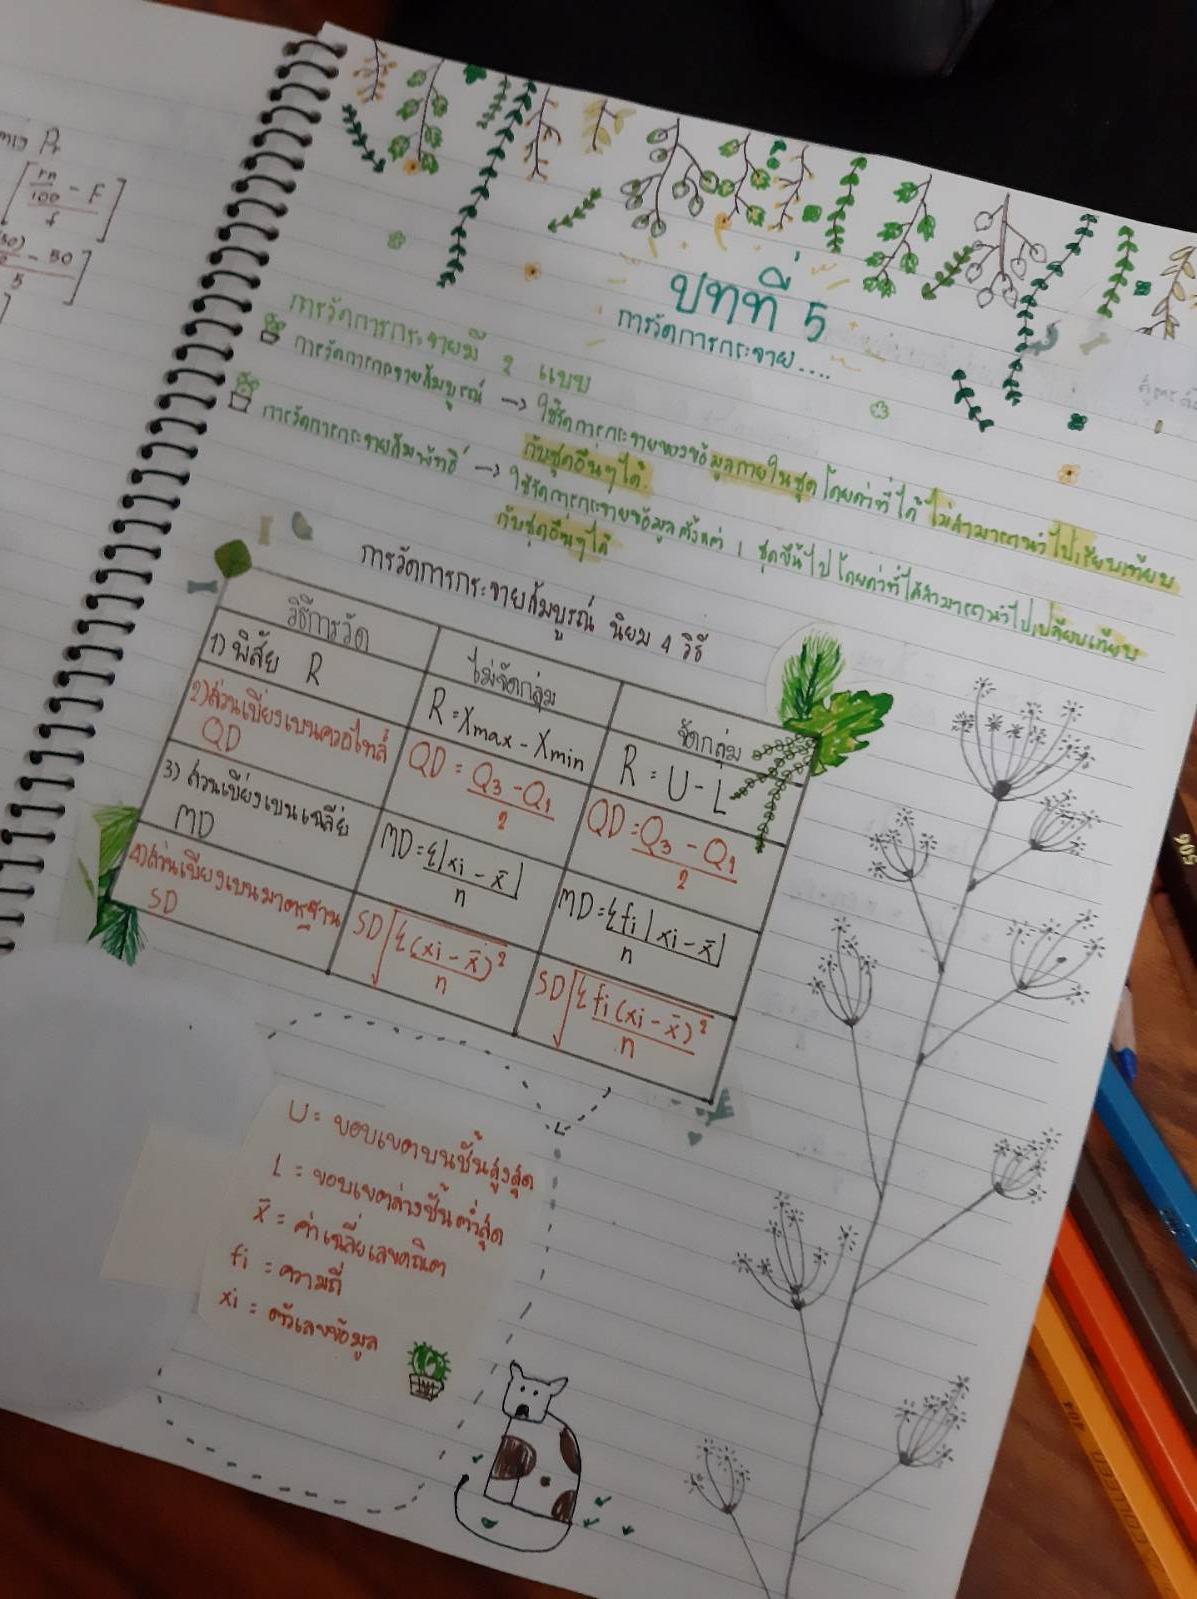 Pr
[rn/100 - F / f]
- 50
5
บทที่ 5
การวัดการกระจาย....
การวัดการกระจายมี 2 แบบ
การวัดการกระจายสัมบูรณ์ → ใช้วัดการกระจายของข้อมูลภายในชุด โดยค่าที่ได้ ไม่สามารถนำไปเรียบเทียบ
กับชุดอื่นๆได้.
การวัดการกระจายสัมพัทธ์ → ใช้วัดการกระจายข้อมูลตั้งแต่ 1 ชุดขึ้นไป โดยค่าที่ได้สามารถนำไปเปรียบเทียบ
กับชุดอื่นๆได้
การวัดการกระจายสัมบูรณ์ นิยม 4 วิธี
วิธีการวัด ไม่จัดกลุ่ม จัดกลุ่ม
1) พิสัย R R = Xmax - Xmin R = U - L
2) ส่วนเบี่ยงเบนควอไทล์ QD QD = Q3 - Q1 / 2 QD = Q3 - Q1 / 2
3) ส่วนเบี่ยงเบนเฉลี่ย MD MD = Σ|xi - x̄| / n MD = Σfi|xi - x̄| / n
4) ส่วนเบี่ยงเบนมาตรฐาน SD SD √Σ(xi - x̄)² / n SD √Σfi(xi - x̄)² / n
U = ขอบเขตบนชั้นสูงสุด
L = ขอบเขตล่างชั้นต่ำสุด
x̄ = ค่าเฉลี่ยเลขคณิต
fi = ความถี่
xi = ตัวเลขข้อมูล
905
404 COLLEEN